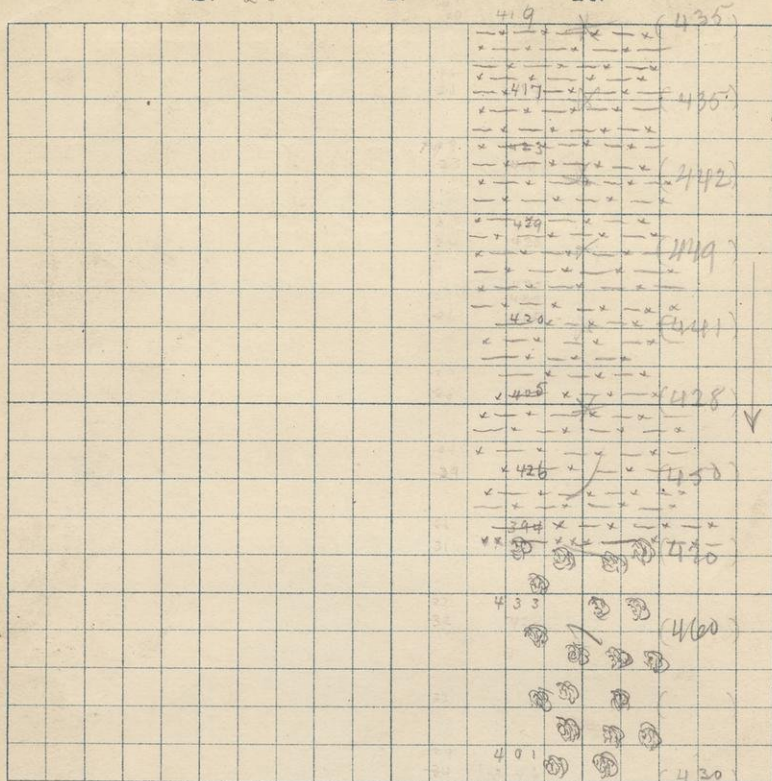 419 (435)
417 (435)
423 (442)
429 (449)
420 (441)
405 (428)
426 (450)
394 (420
433 (460)
401 (430